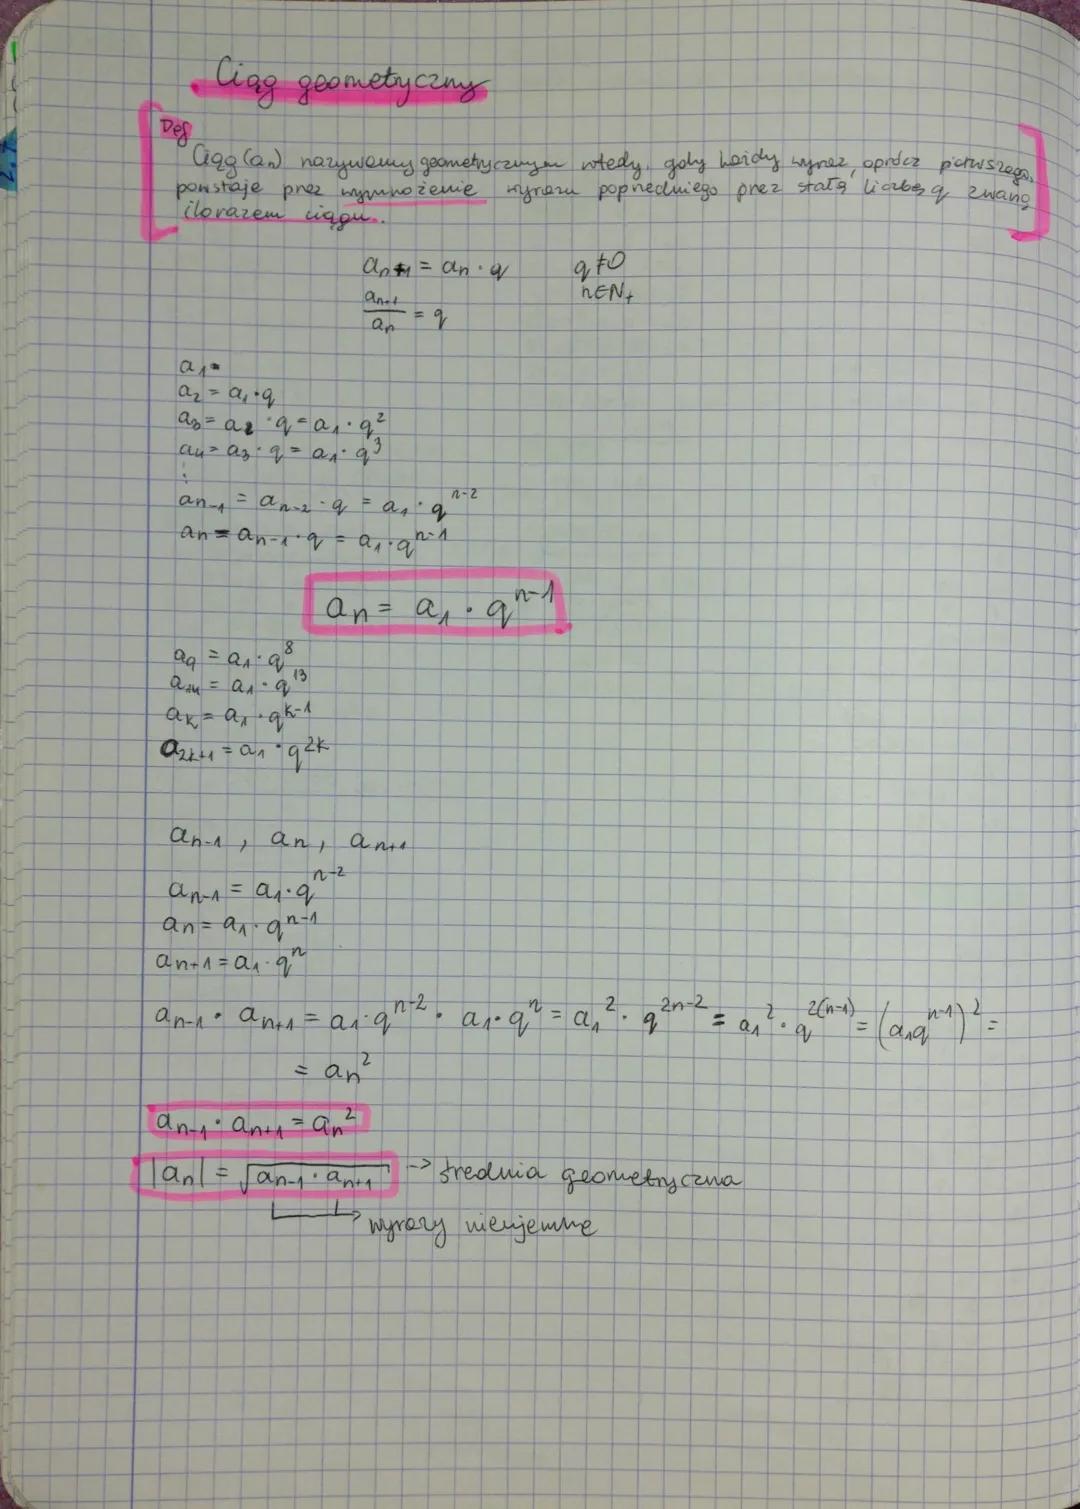 Ciąg geometyczny
Def
Ciąg (an) nazywamy geometrycznym wtedy, gdy każdy wyraz, oprócz pierwszego,
powstaje przez wymnożenie wyrazu poprzedniego przez stałą liczbę q zwaną
ilorazem ciągu.
aₙ₊₁ = aₙ · q q≠0
aₙ₊₁/aₙ = q n∈N₊
a₁
a₂ = a₁·q
a₃ = a₂ · q = a₁ · q²
a₄ = a₃ · q = a₁ · q³
⋮
aₙ₋₁ = aₙ₋₂ · q = a₁ · qⁿ⁻²
aₙ = aₙ₋₁ · q = a₁ · qⁿ⁻¹
aₙ = a₁ · qⁿ⁻¹
a₉ = a₁ · q⁸
a₁₄ = a₁ · q¹³
aₖ = a₁ · qᵏ⁻¹
a₂ₖ₊₁ = a₁ · q²ᵏ
aₙ₋₁ , aₙ , aₙ₊₁
aₙ₋₁ = a₁ · qⁿ⁻²
aₙ = a₁ · qⁿ⁻¹
aₙ₊₁ = a₁ · qⁿ
aₙ₋₁ · aₙ₊₁ = a₁ · qⁿ⁻² · a₁ · qⁿ = a₁² · q²ⁿ⁻² = a₁² · q²⁽ⁿ⁻¹⁾ = (a₁qⁿ⁻¹)² =
= aₙ²
aₙ₋₁ · aₙ₊₁ = aₙ²
|aₙ| = √(aₙ₋₁ · aₙ₊₁) -> średnia geometryczna
wyrazy nieujemne